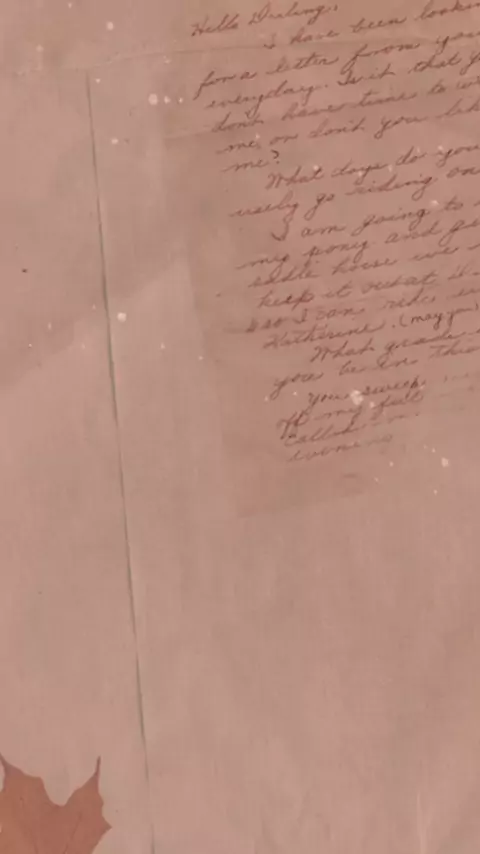 Hello Darling,
I have been lookin
for a letter from you
everyday. Is it that y
don't have time to w
me, or don't you lik
me?
What days do you
usely go riding on
I am going to
my pony and ge
sadle horse we
keep it out at
so I can ride
Katherine. (may you)
What grade
you be in this
You sweep
of my feet